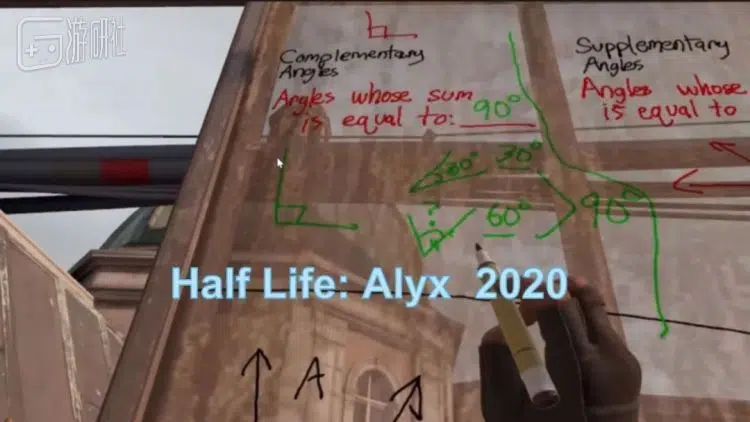 游研社
Complementary
Angles
Angles whose sum
is equal to: 90°
Supplementary
Angles
Angles whose
is equal to
30° 30°
? 60° 90°
Half Life: Alyx 2020
A